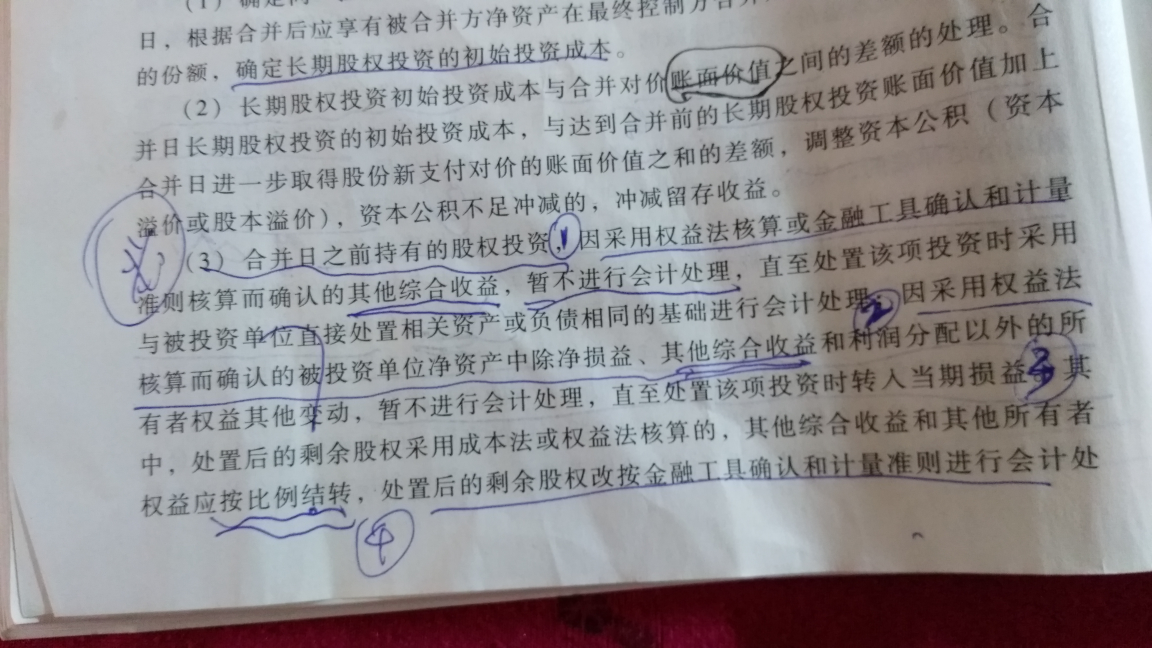 (1)确定同一
日，根据合并后应享有被合并方净资产在最终控制方合并
的份额，确定长期股权投资的初始投资成本。
(2)长期股权投资初始投资成本与合并对价账面价值之间的差额的处理。合
并日长期股权投资的初始投资成本，与达到合并前的长期股权投资账面价值加上
合并日进一步取得股份新支付对价的账面价值之和的差额，调整资本公积（资本
溢价或股本溢价），资本公积不足冲减的，冲减留存收益。
(3)合并日之前持有的股权投资，因采用权益法核算或金融工具确认和计量
准则核算而确认的其他综合收益，暂不进行会计处理，直至处置该项投资时采用
与被投资单位直接处置相关资产或负债相同的基础进行会计处理；因采用权益法
核算而确认的被投资单位净资产中除净损益、其他综合收益和利润分配以外的所
有者权益其他变动，暂不进行会计处理，直至处置该项投资时转入当期损益。其
中，处置后的剩余股权采用成本法或权益法核算的，其他综合收益和其他所有者
权益应按比例结转，处置后的剩余股权改按金融工具确认和计量准则进行会计处
1
2
3
4